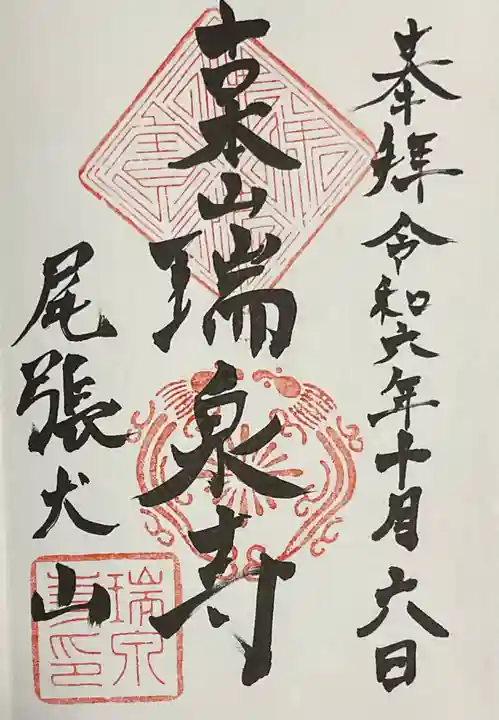 奉拝 令和六年十月六日
古本山瑞泉寺
尾張犬山
瑞泉
寺印